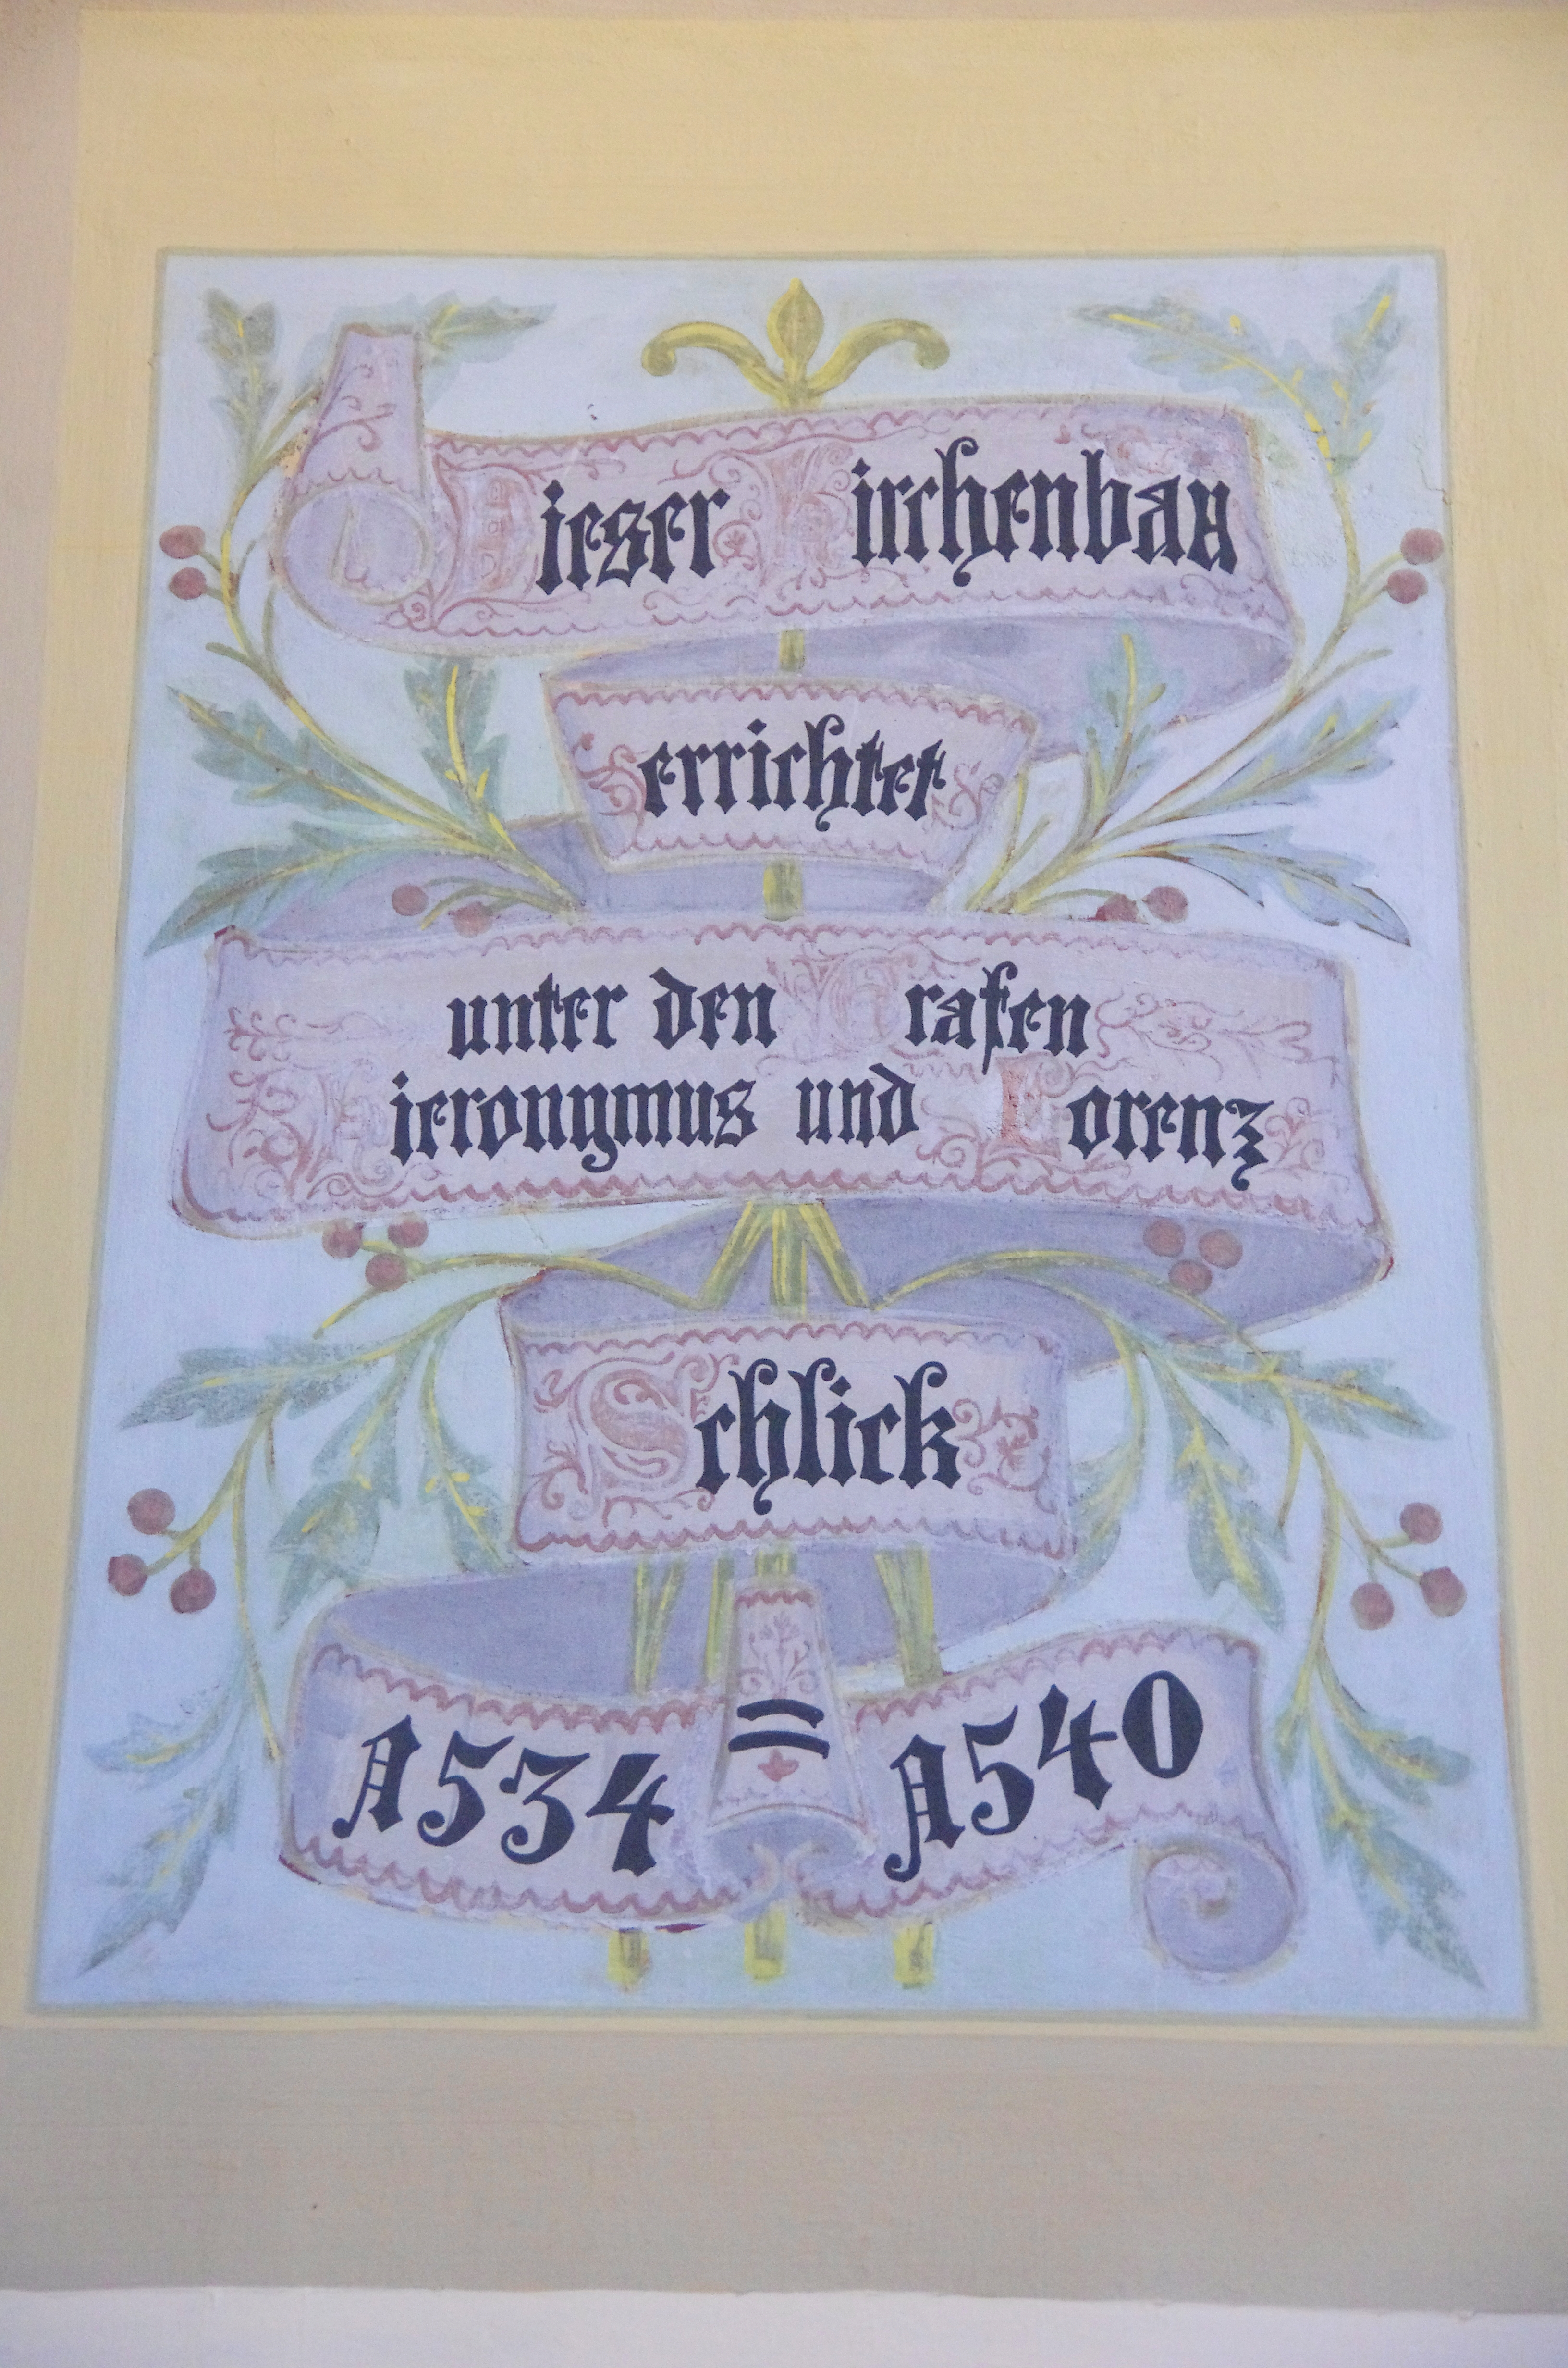 Dieser Kirchenbau
errichtet
unter den Grafen
Hieronymus und Lorenz
Schlick
1534 = 1540